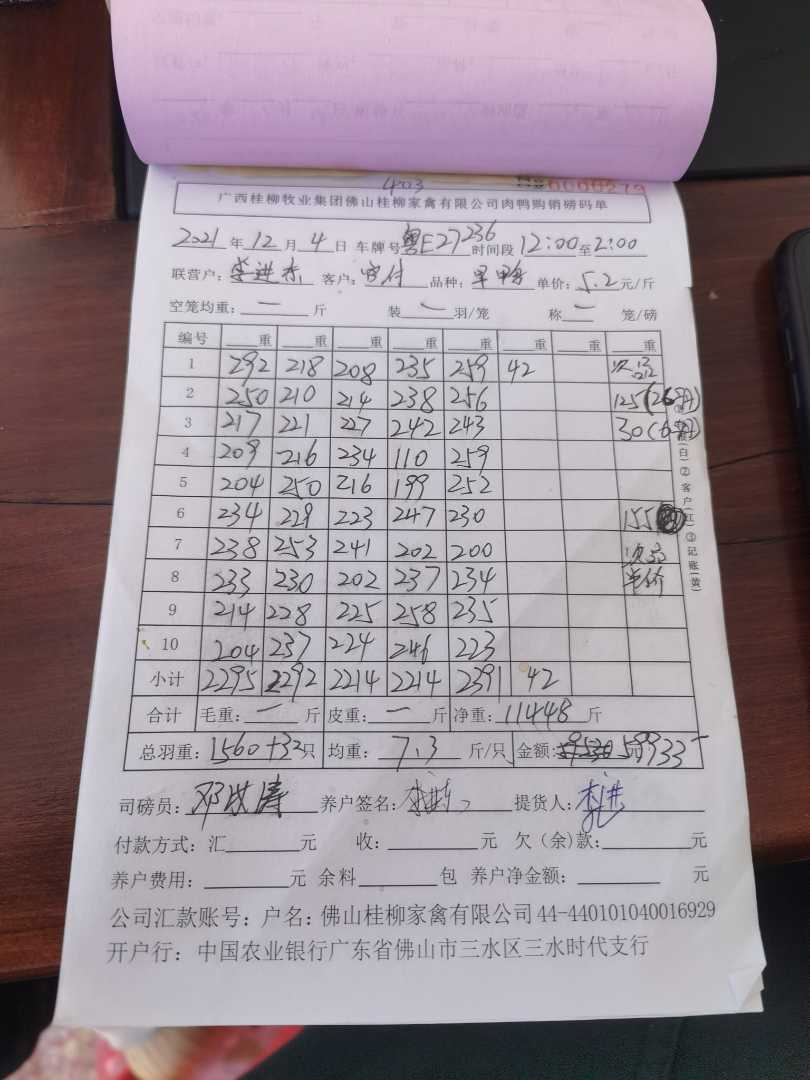 403
0000279
广西桂柳牧业集团佛山桂柳家禽有限公司肉鸭购销磅码单
2021年12月4日 车牌号粤E27236时间段12:00至2:00
联营户:李进 客户: 品种: 单价:5.2元/斤
空笼均重:一斤 装一羽/笼 称一笼/磅
编号 重 重 重 重 重 重 重 重
1 292 218 208 235 259 42 次品
2 250 210 214 238 256 125(26
3 217 221 227 242 243 30(6
4 209 216 234 110 259
5 204 250 216 199 252
6 234 229 223 247 230 155
7 238 253 241 202 200 次品
8 233 230 202 237 234 单价
9 214 228 225 258 235
10 204 237 224 246 223
小计 2295 2292 2214 2214 2391 42
合计 毛重:一斤 皮重:一斤 净重:11448斤
总羽重:1560+32只 均重:7.3斤/只 金额:59933元
司磅员:邓 养户签名: 提货人:李进
付款方式:汇 元 收: 元 欠(余)款: 元
养户费用: 元 余料 包 养户净金额: 元
公司汇款账号:户名:佛山桂柳家禽有限公司44-440101040016929
开户行:中国农业银行广东省佛山市三水区三水时代支行
(白)②客户(红)③记账(黄)